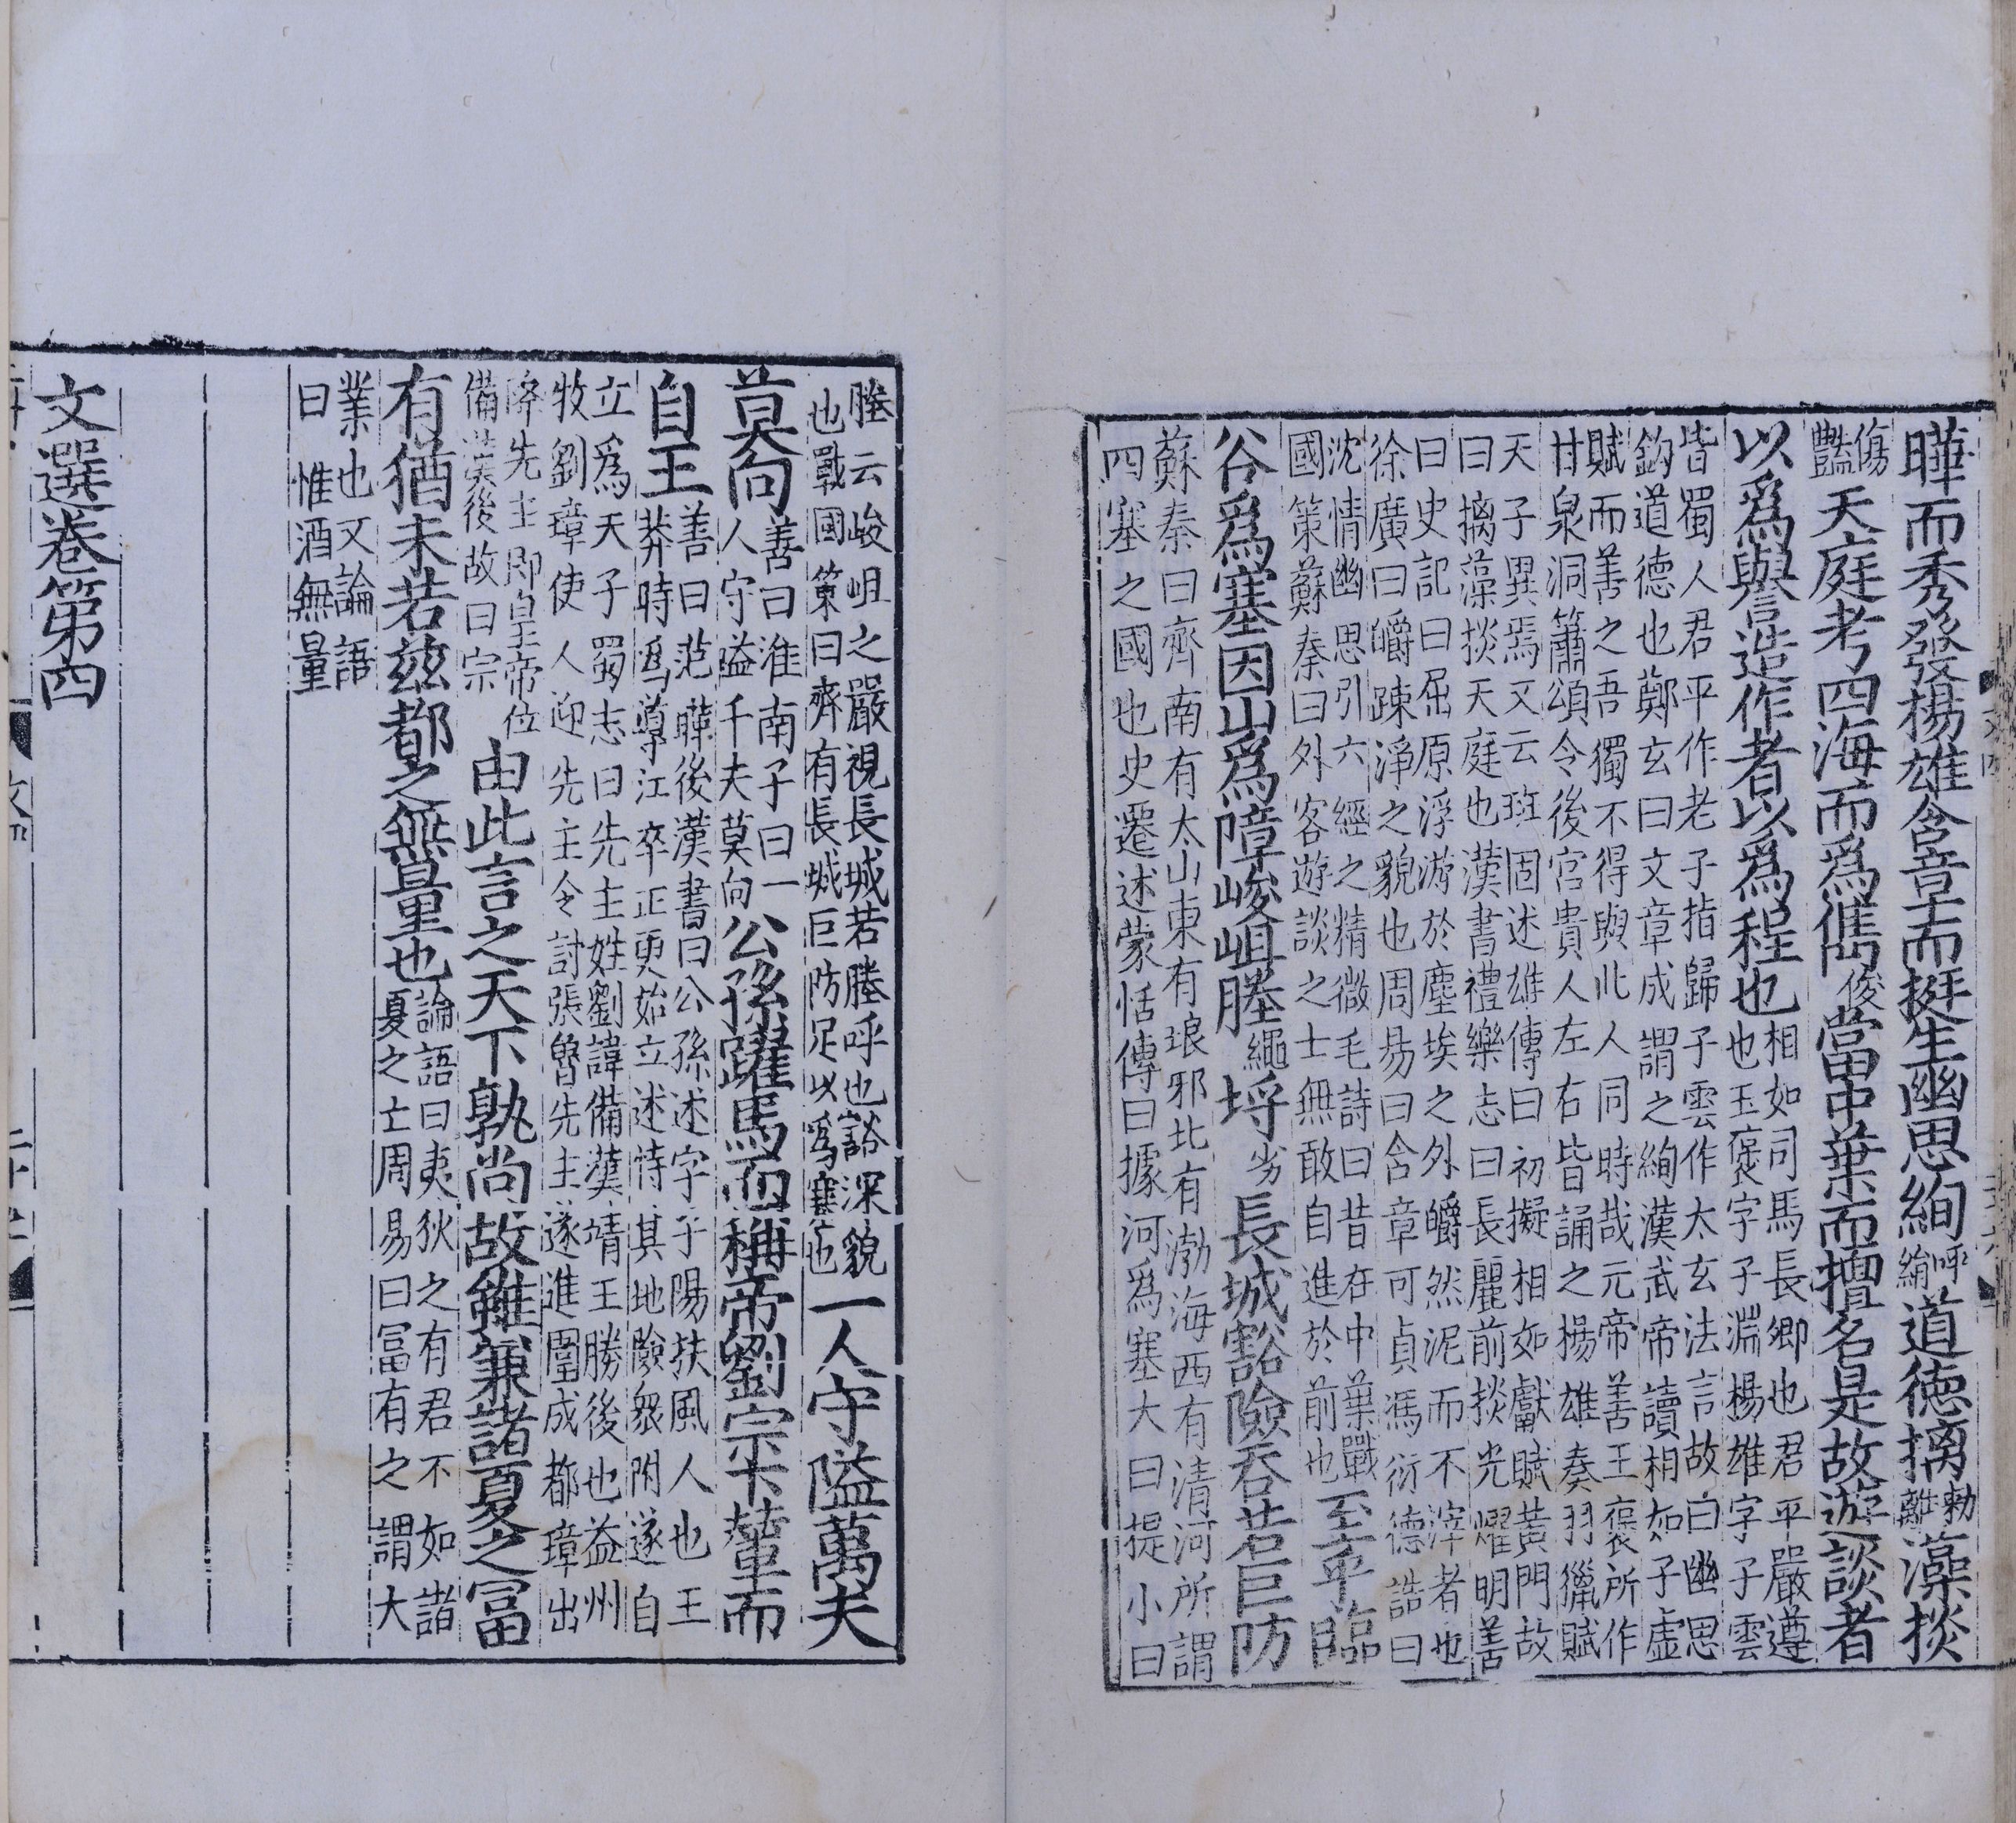 曄而秀發楊雄含章而挺生幽思絢呼絹道德摛勑離藻掞
傷豔天庭考四海而爲儁俊當中葉而擅名是故遊談者
以爲譽造作者以爲程也相如司馬長卿也君平嚴遵也玉褒字子淵楊雄字子雲
皆蜀人君平作老子指歸子雲作太玄法言故曰幽思
鉤道德也鄭玄曰文章成謂之絢漢武帝讀相如子虛
賦而善之吾獨不得與此人同時哉元帝善王褒所作
甘泉洞簫頌令後宮貴人左右皆誦之揚雄奏羽獵賦
天子異焉又云班固述雄傳曰初擬相如獻賦黃門故
曰摛藻掞天庭也漢書禮樂志曰長麗前掞光燿明善
曰史記曰屈原浮游於塵埃之外皭然泥而不滓者也
徐廣曰皭踈淨之貌也周易曰含章可貞馮衍德誥曰
沈情幽思引六經之精微毛詩曰昔在中葉戰
國策蘇秦曰外客遊談之士無敢自進於前也至乎臨
谷爲塞因山爲障峻岨塍繩埒劣長城豁險吞若巨防
蘇秦曰齊南有太山東有琅邪北有渤海西有清河所謂
四塞之國也史遷述蒙恬傳曰據河爲塞大曰提小曰
塍云峻岨之嚴視長城若塍呼也豁深貌
也戰國策曰齊有長城巨防足以爲塞也一人守隘萬夫
莫向善曰淮南子曰一人守隘千夫莫向公孫躍馬而稱帝劉宗下輦而
自王善曰范曄後漢書曰公孫述字子陽扶風人也王
莽時爲導江卒正更始立述恃其地險衆附遂自
立爲天子蜀志曰先主姓劉諱備漢靖王勝後也益州
牧劉璋使人迎先主令討張魯先主遂進圍成都璋出
降先主即皇帝位
備漢後故曰宗由此言之天下孰尚故雖兼諸夏之冨
有猶未若兹都之無量也論語曰夷狄之有君不如諸
夏之亡周易曰冨有之謂大
業也又論語
曰惟酒無量
文選卷第四